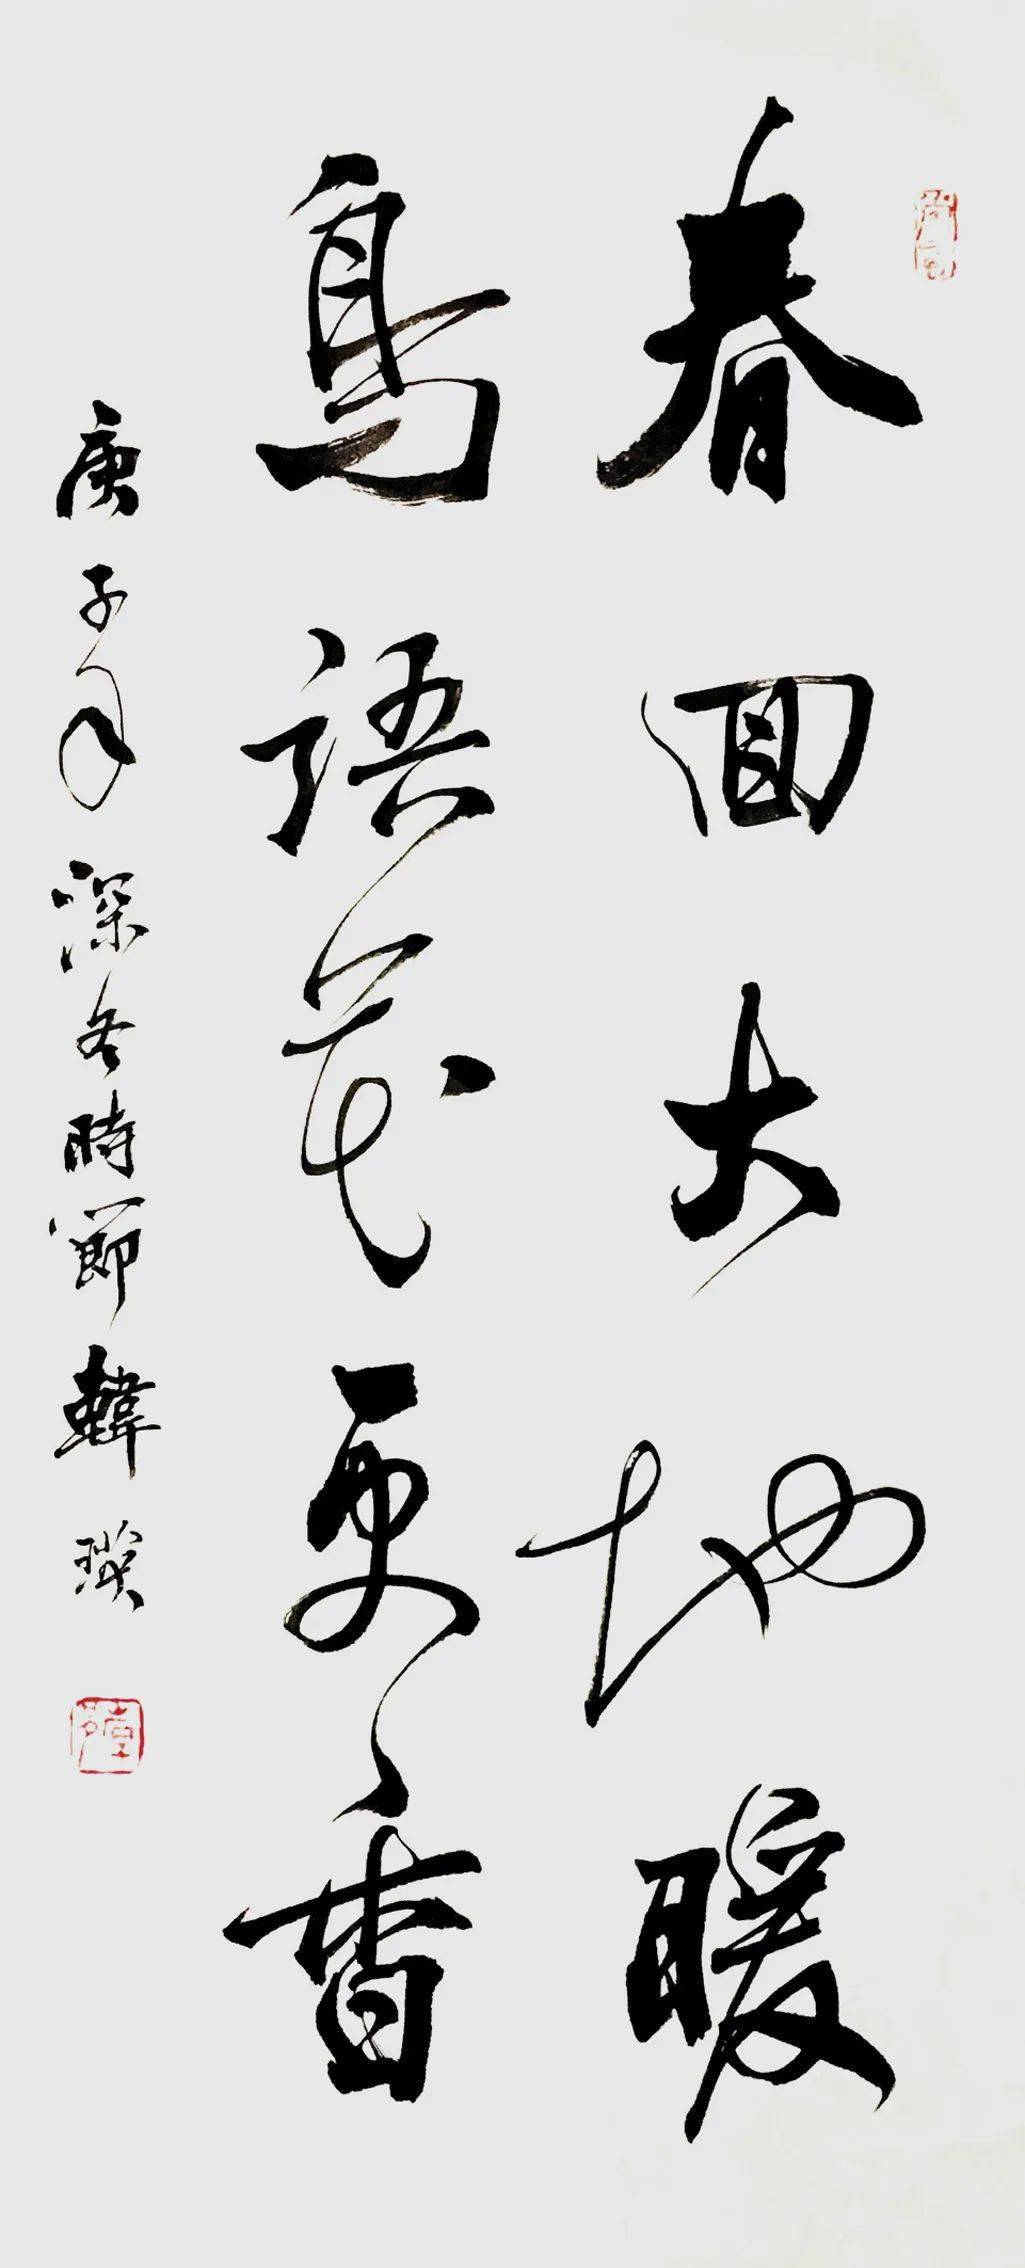 春回大地暖
鳥語花更香
庚子年深冬時節韓瑛